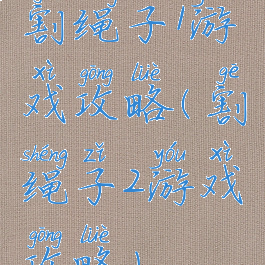 割绳子1游
xì gōng lüè gē
戏攻略(割
shéng zǐ yóu xì
绳子2游戏
gōng lüè
攻略)